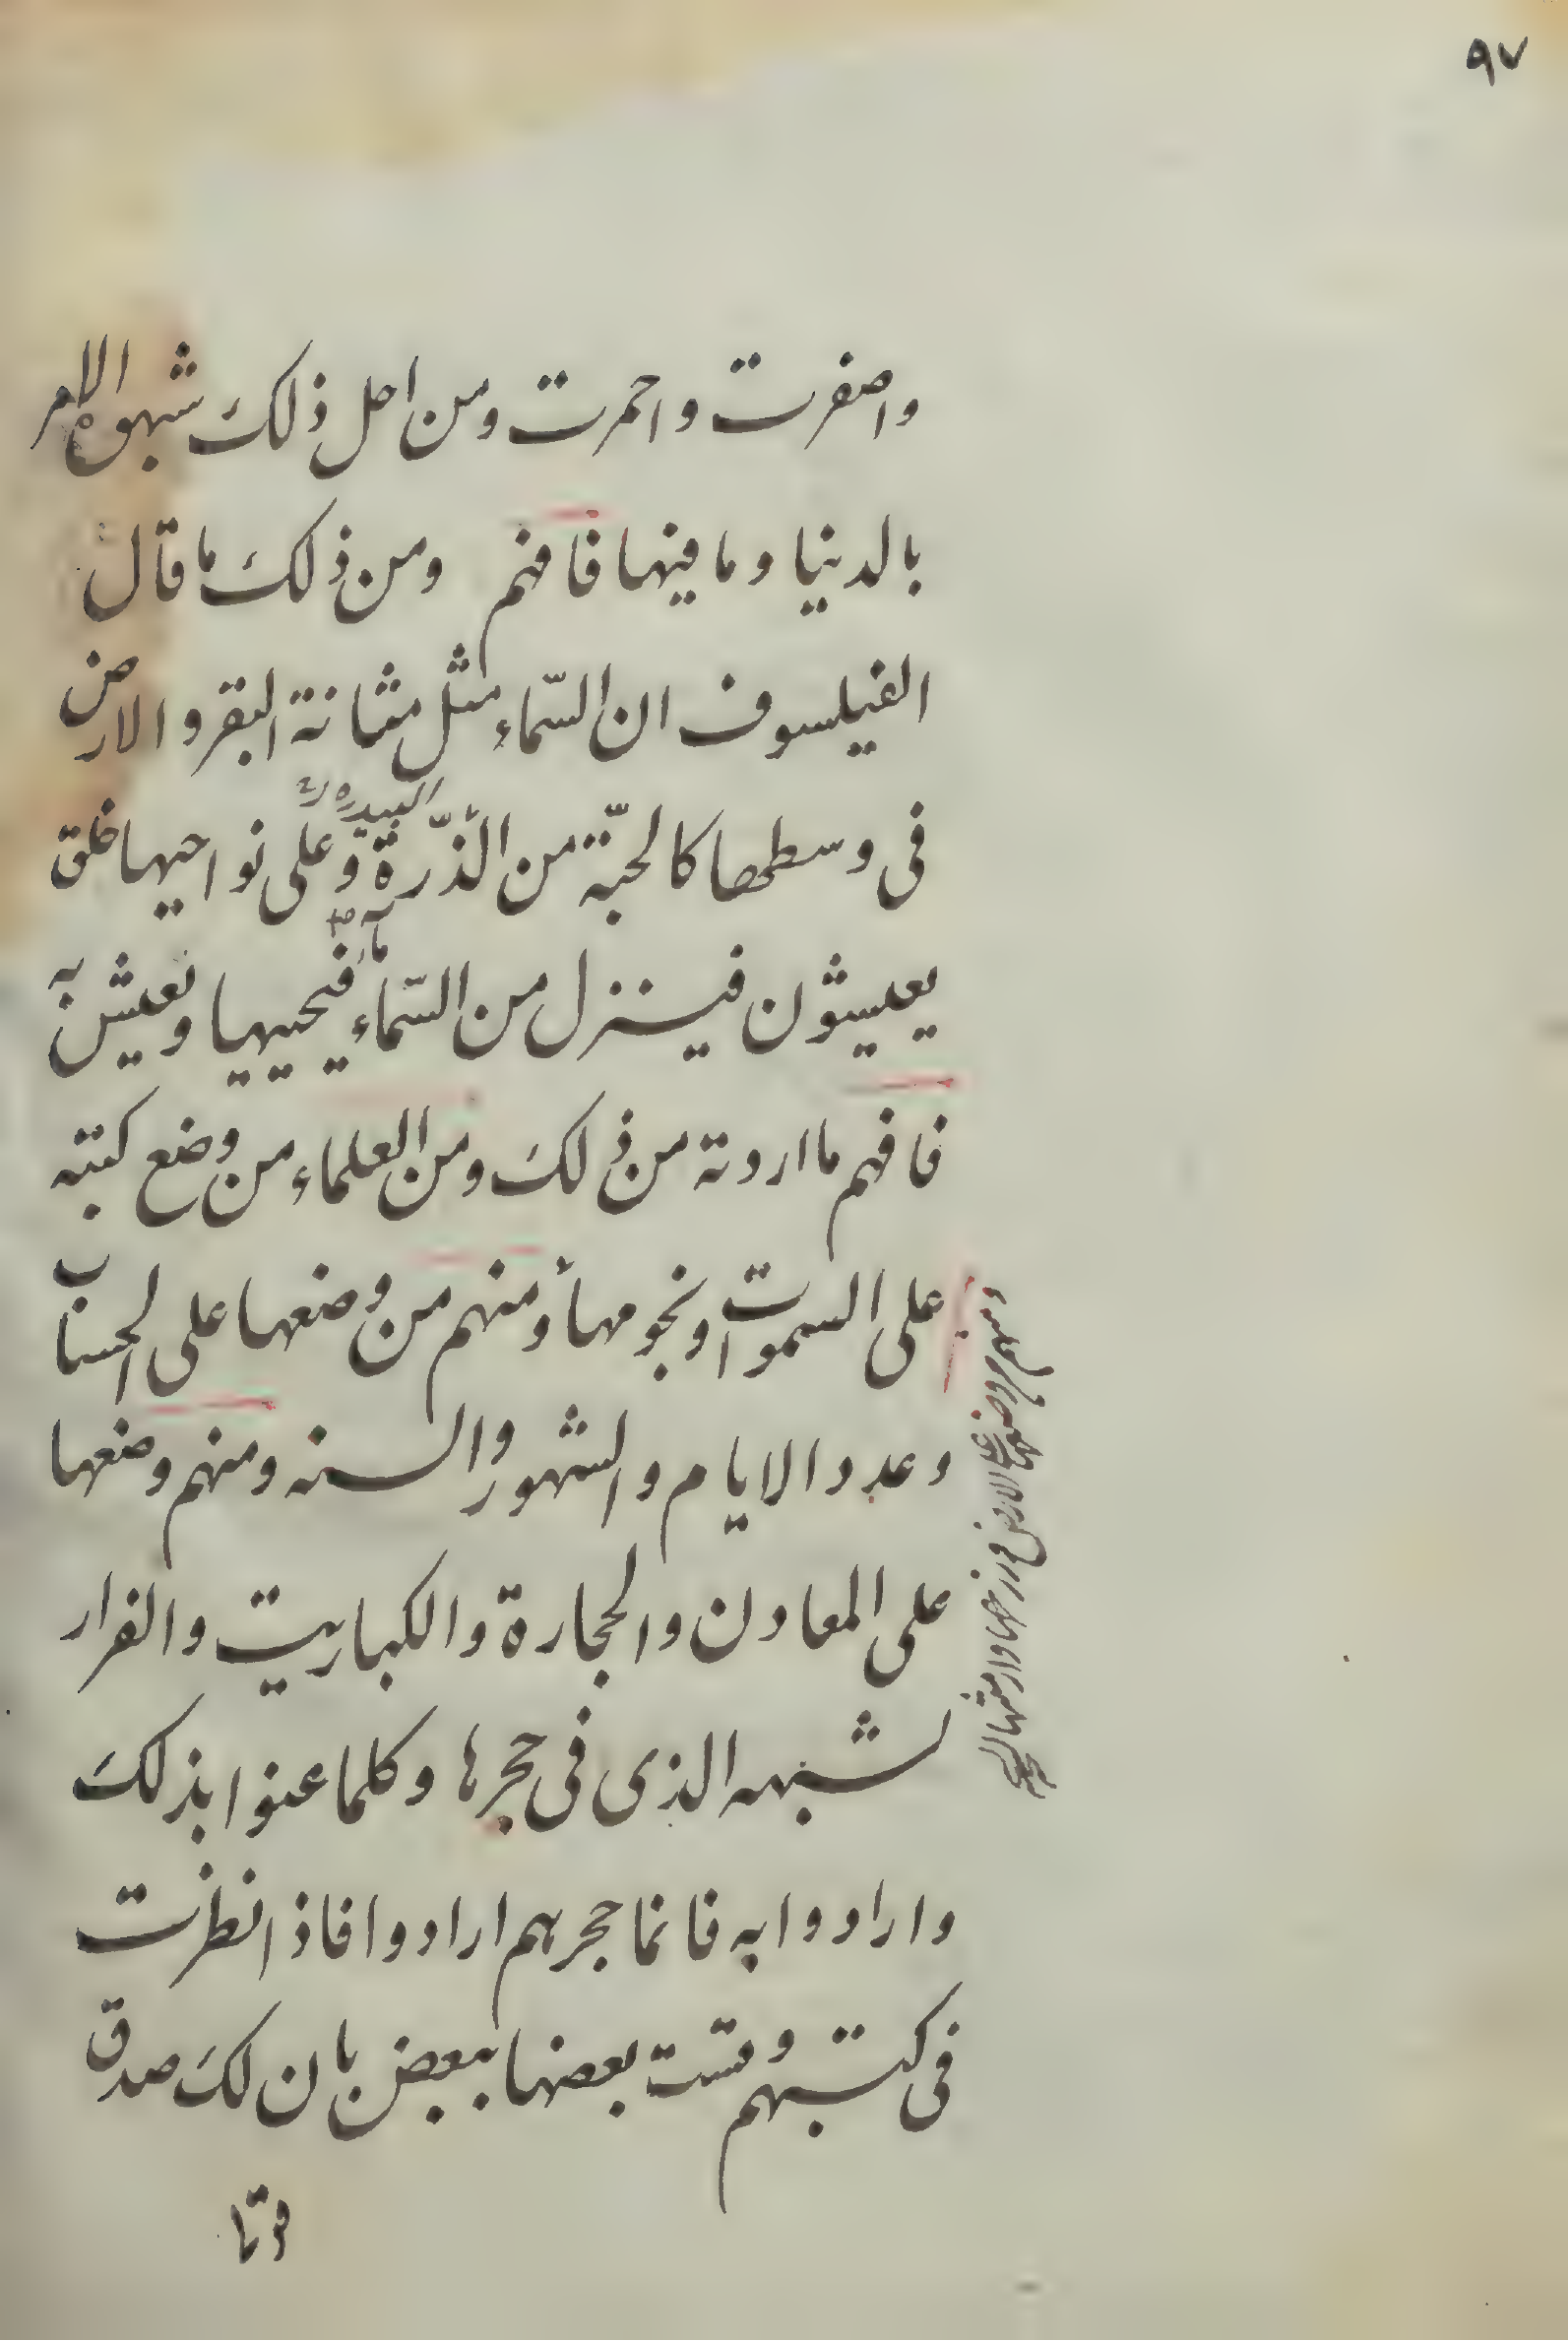 ٩٧
واصفرت واحمرت ومن اجل ذلك شبهوه الامر
بالدنيا وما فيها فافهم ومن ذلك ما قال
الفيلسوف ان السّماء مثل مثانة البقر والارض
فى وسطها كالحبّة من الذّرة وعلى نواحيها خلق
يعيشون فينزل من السّماء ماء فيحييها ونعيش به
فافهم ما اردته من ذلك ومن العلماء من وضع كتبه
على السموات ونجومها ومنهم من وضعها على الحساب
وعدد الايام والشهور والسنه ومنهم وضعها
على المعادن والحجارة والكباريت والفرار
لشبهه الذى فى حجرها وكلما عنوا بذلك
وارادوا به فانما حجرهم ارادوا فاذا نظرت
فى كتبهم وقست بعضها ببعض بان لك صدق
ومنهم من وضعها على الارض وزرعها